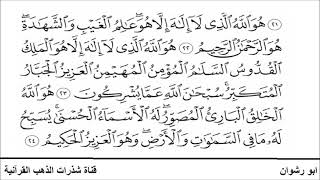 ٢١ هُوَ ٱللَّهُ ٱلَّذِى لَآ إِلَٰهَ إِلَّا هُوَ ۖ عَٰلِمُ ٱلْغَيْبِ وَٱلشَّهَٰدَةِ ۖ
هُوَ ٱلرَّحْمَٰنُ ٱلرَّحِيمُ ٢٢ هُوَ ٱللَّهُ ٱلَّذِى لَآ إِلَٰهَ إِلَّا هُوَ ٱلْمَلِكُ
ٱلْقُدُّوسُ ٱلسَّلَٰمُ ٱلْمُؤْمِنُ ٱلْمُهَيْمِنُ ٱلْعَزِيزُ ٱلْجَبَّارُ
ٱلْمُتَكَبِّرُ ۚ سُبْحَٰنَ ٱللَّهِ عَمَّا يُشْرِكُونَ ٢٣ هُوَ ٱللَّهُ
ٱلْخَٰلِقُ ٱلْبَارِئُ ٱلْمُصَوِّرُ ۖ لَهُ ٱلْأَسْمَآءُ ٱلْحُسْنَىٰ ۚ يُسَبِّحُ
لَهُۥ مَا فِى ٱلسَّمَٰوَٰتِ وَٱلْأَرْضِ ۖ وَهُوَ ٱلْعَزِيزُ ٱلْحَكِيمُ ٢٤
ابو رشوان
قناة شذرات الذهب القرآنية